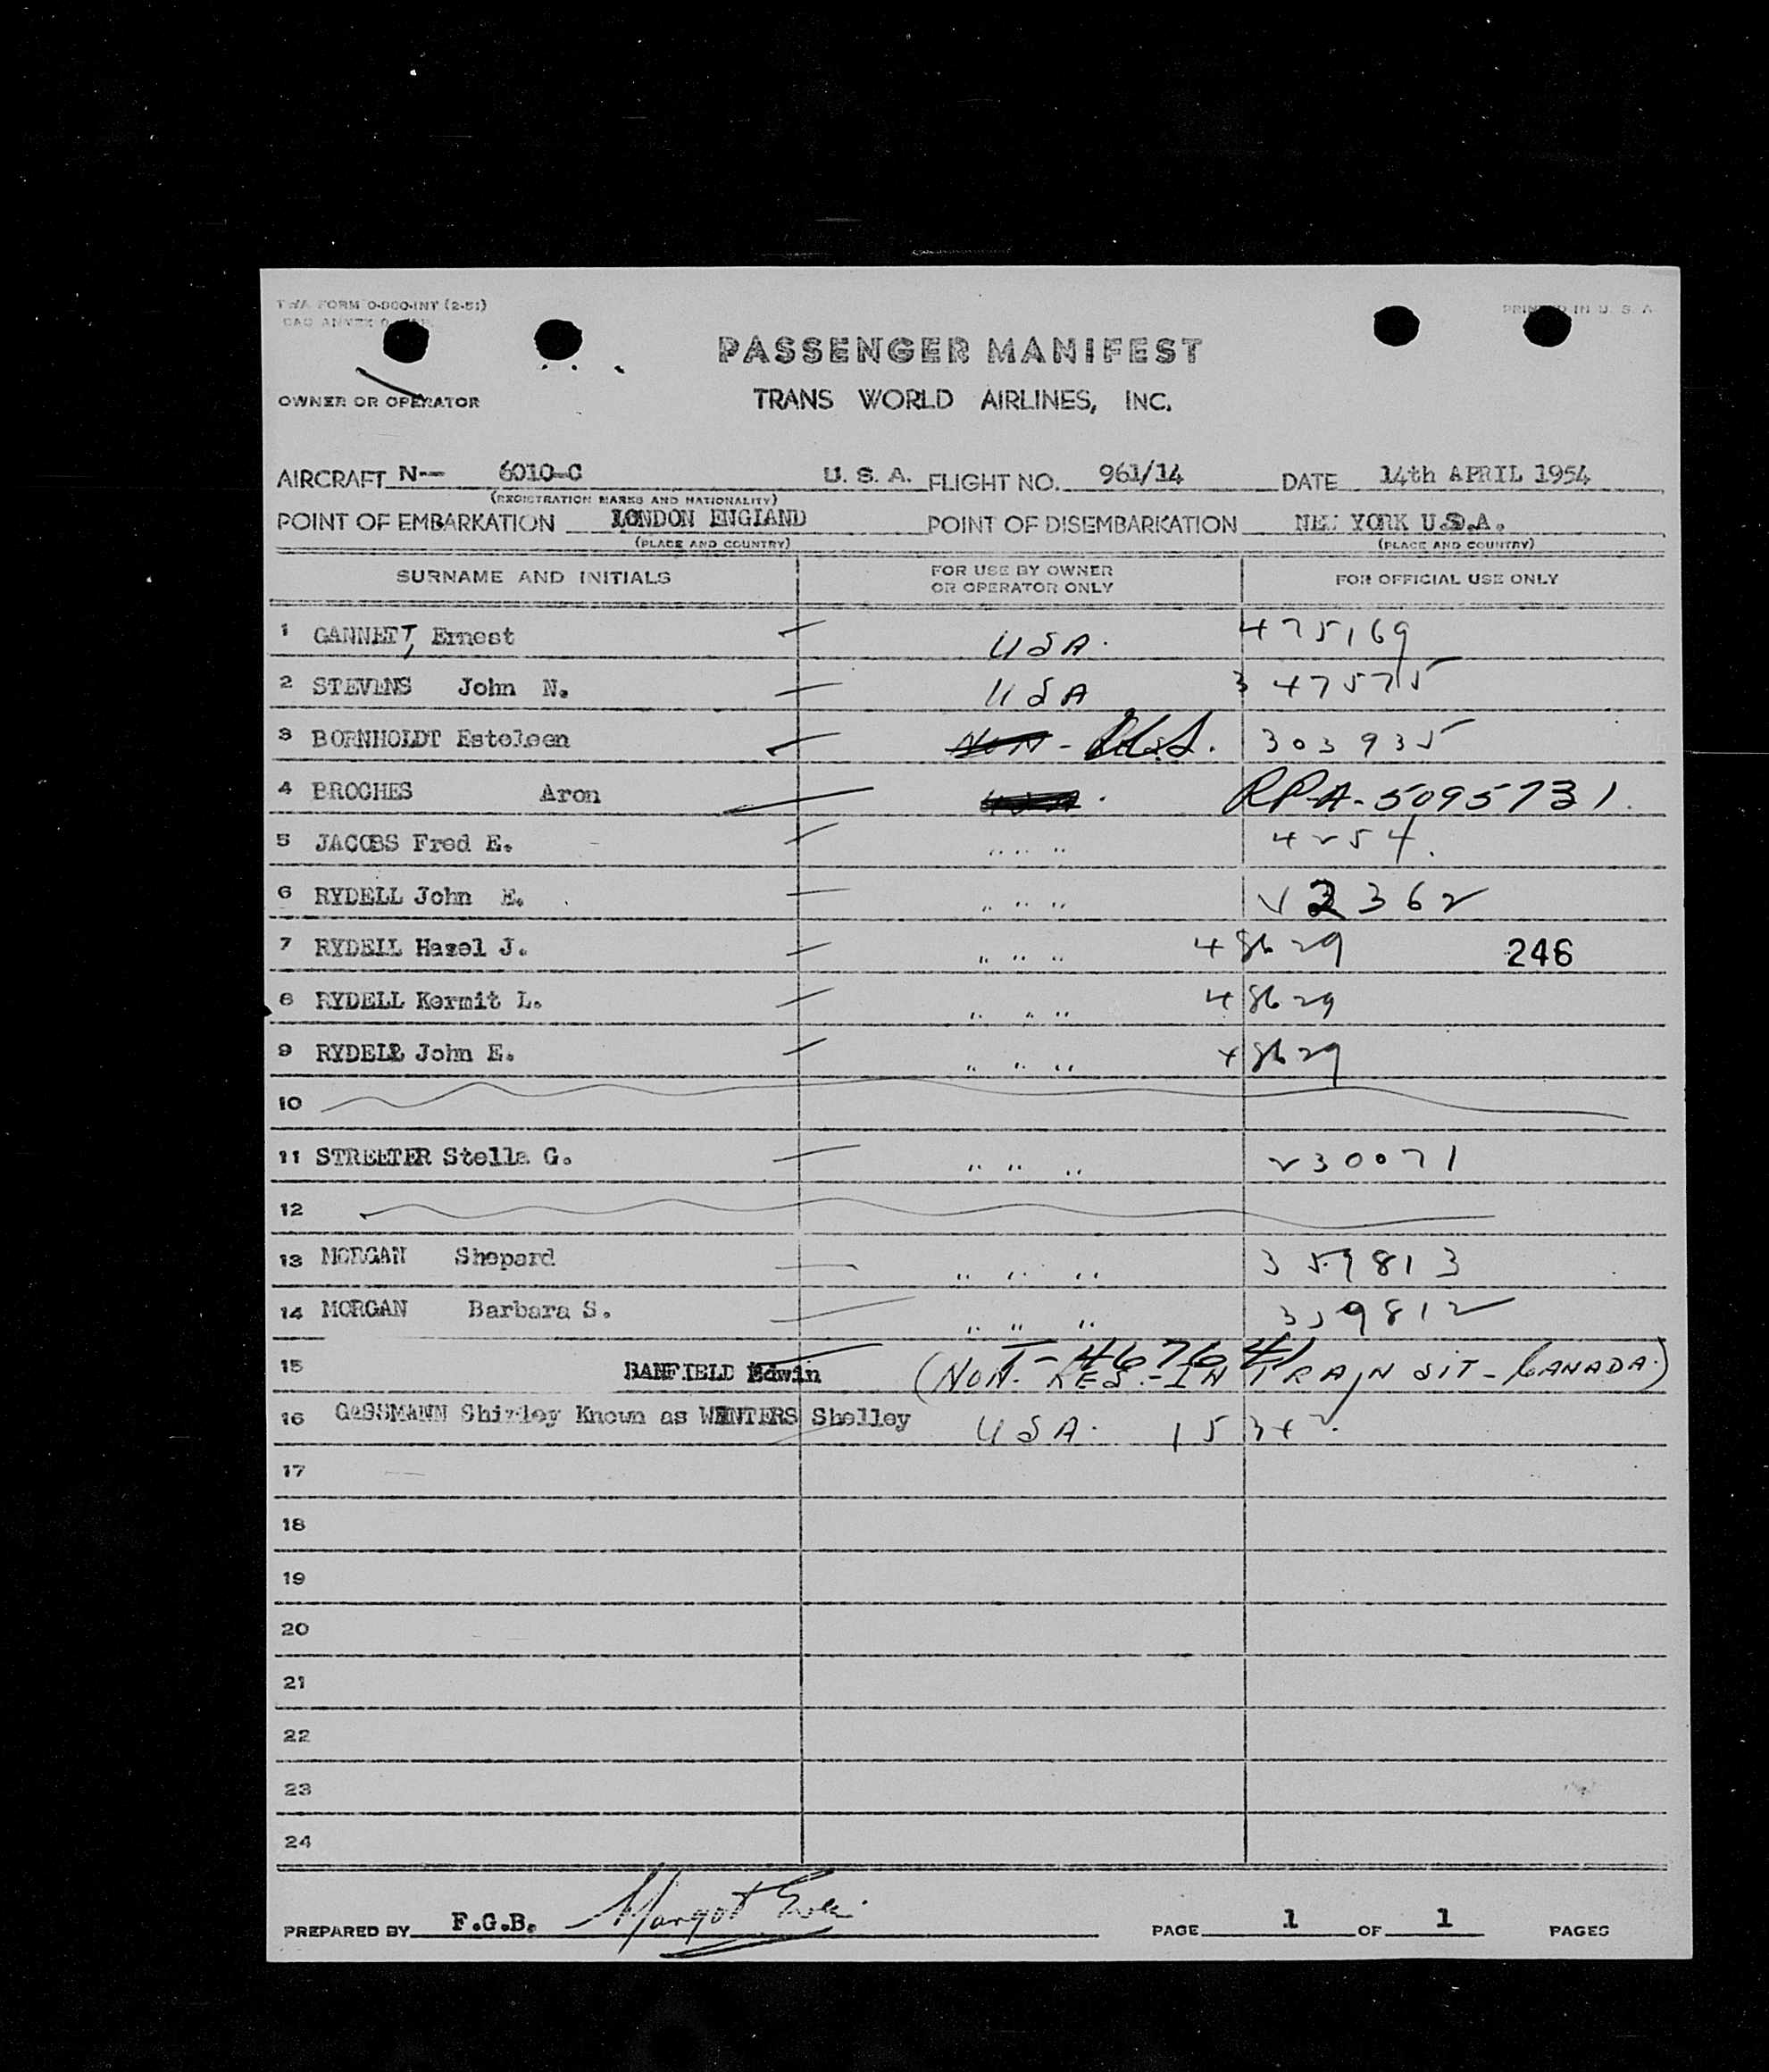 TWA FORM O-900-INT (2-51)
PRINTED IN U. S. A
PASSENGER MANIFEST
OWNER OR OPERATOR
TRANS WORLD AIRLINES, INC.
AIRCRAFT N-- 6010-C U. S. A. FLIGHT NO. 961/14 DATE 14th APRIL 1954
(REGISTRATION MARKS AND NATIONALITY)
POINT OF EMBARKATION LONDON ENGLAND POINT OF DISEMBARKATION NEW YORK U.S.A.
(PLACE AND COUNTRY) (PLACE AND COUNTRY)
SURNAME AND INITIALS FOR USE BY OWNER OR OPERATOR ONLY FOR OFFICIAL USE ONLY
1 GANNETT, Ernest USA. 475169
2 STEVENS John N. USA 347575
3 BORNHOLDT Esteleen NON- 303935
4 BROCHES Aron RP-A-5095731.
5 JACOBS Fred E. " " " 4254.
6 RYDELL John E. " " " 22362
7 RYDELL Hazel J. " " " 48629 246
8 RYDELL Kermit L. " " " 48629
9 RYDELL John E. " " " 48629
10
11 STREETER Stella G. " " " 230071
12
13 MORGAN Shepard " " " 359813
14 MORGAN Barbara S. " " " 359812
T-467641
15 BANFIELD Edwin (NON-RES.-IN TRAINSIT-CANADA.)
16 GASSMANN Shirley Known as WINTERS Shelley USA. 15342.
17
18
19
20
21
22
23
24
PREPARED BY F.G.B. Margot PAGE 1 OF 1 PAGES